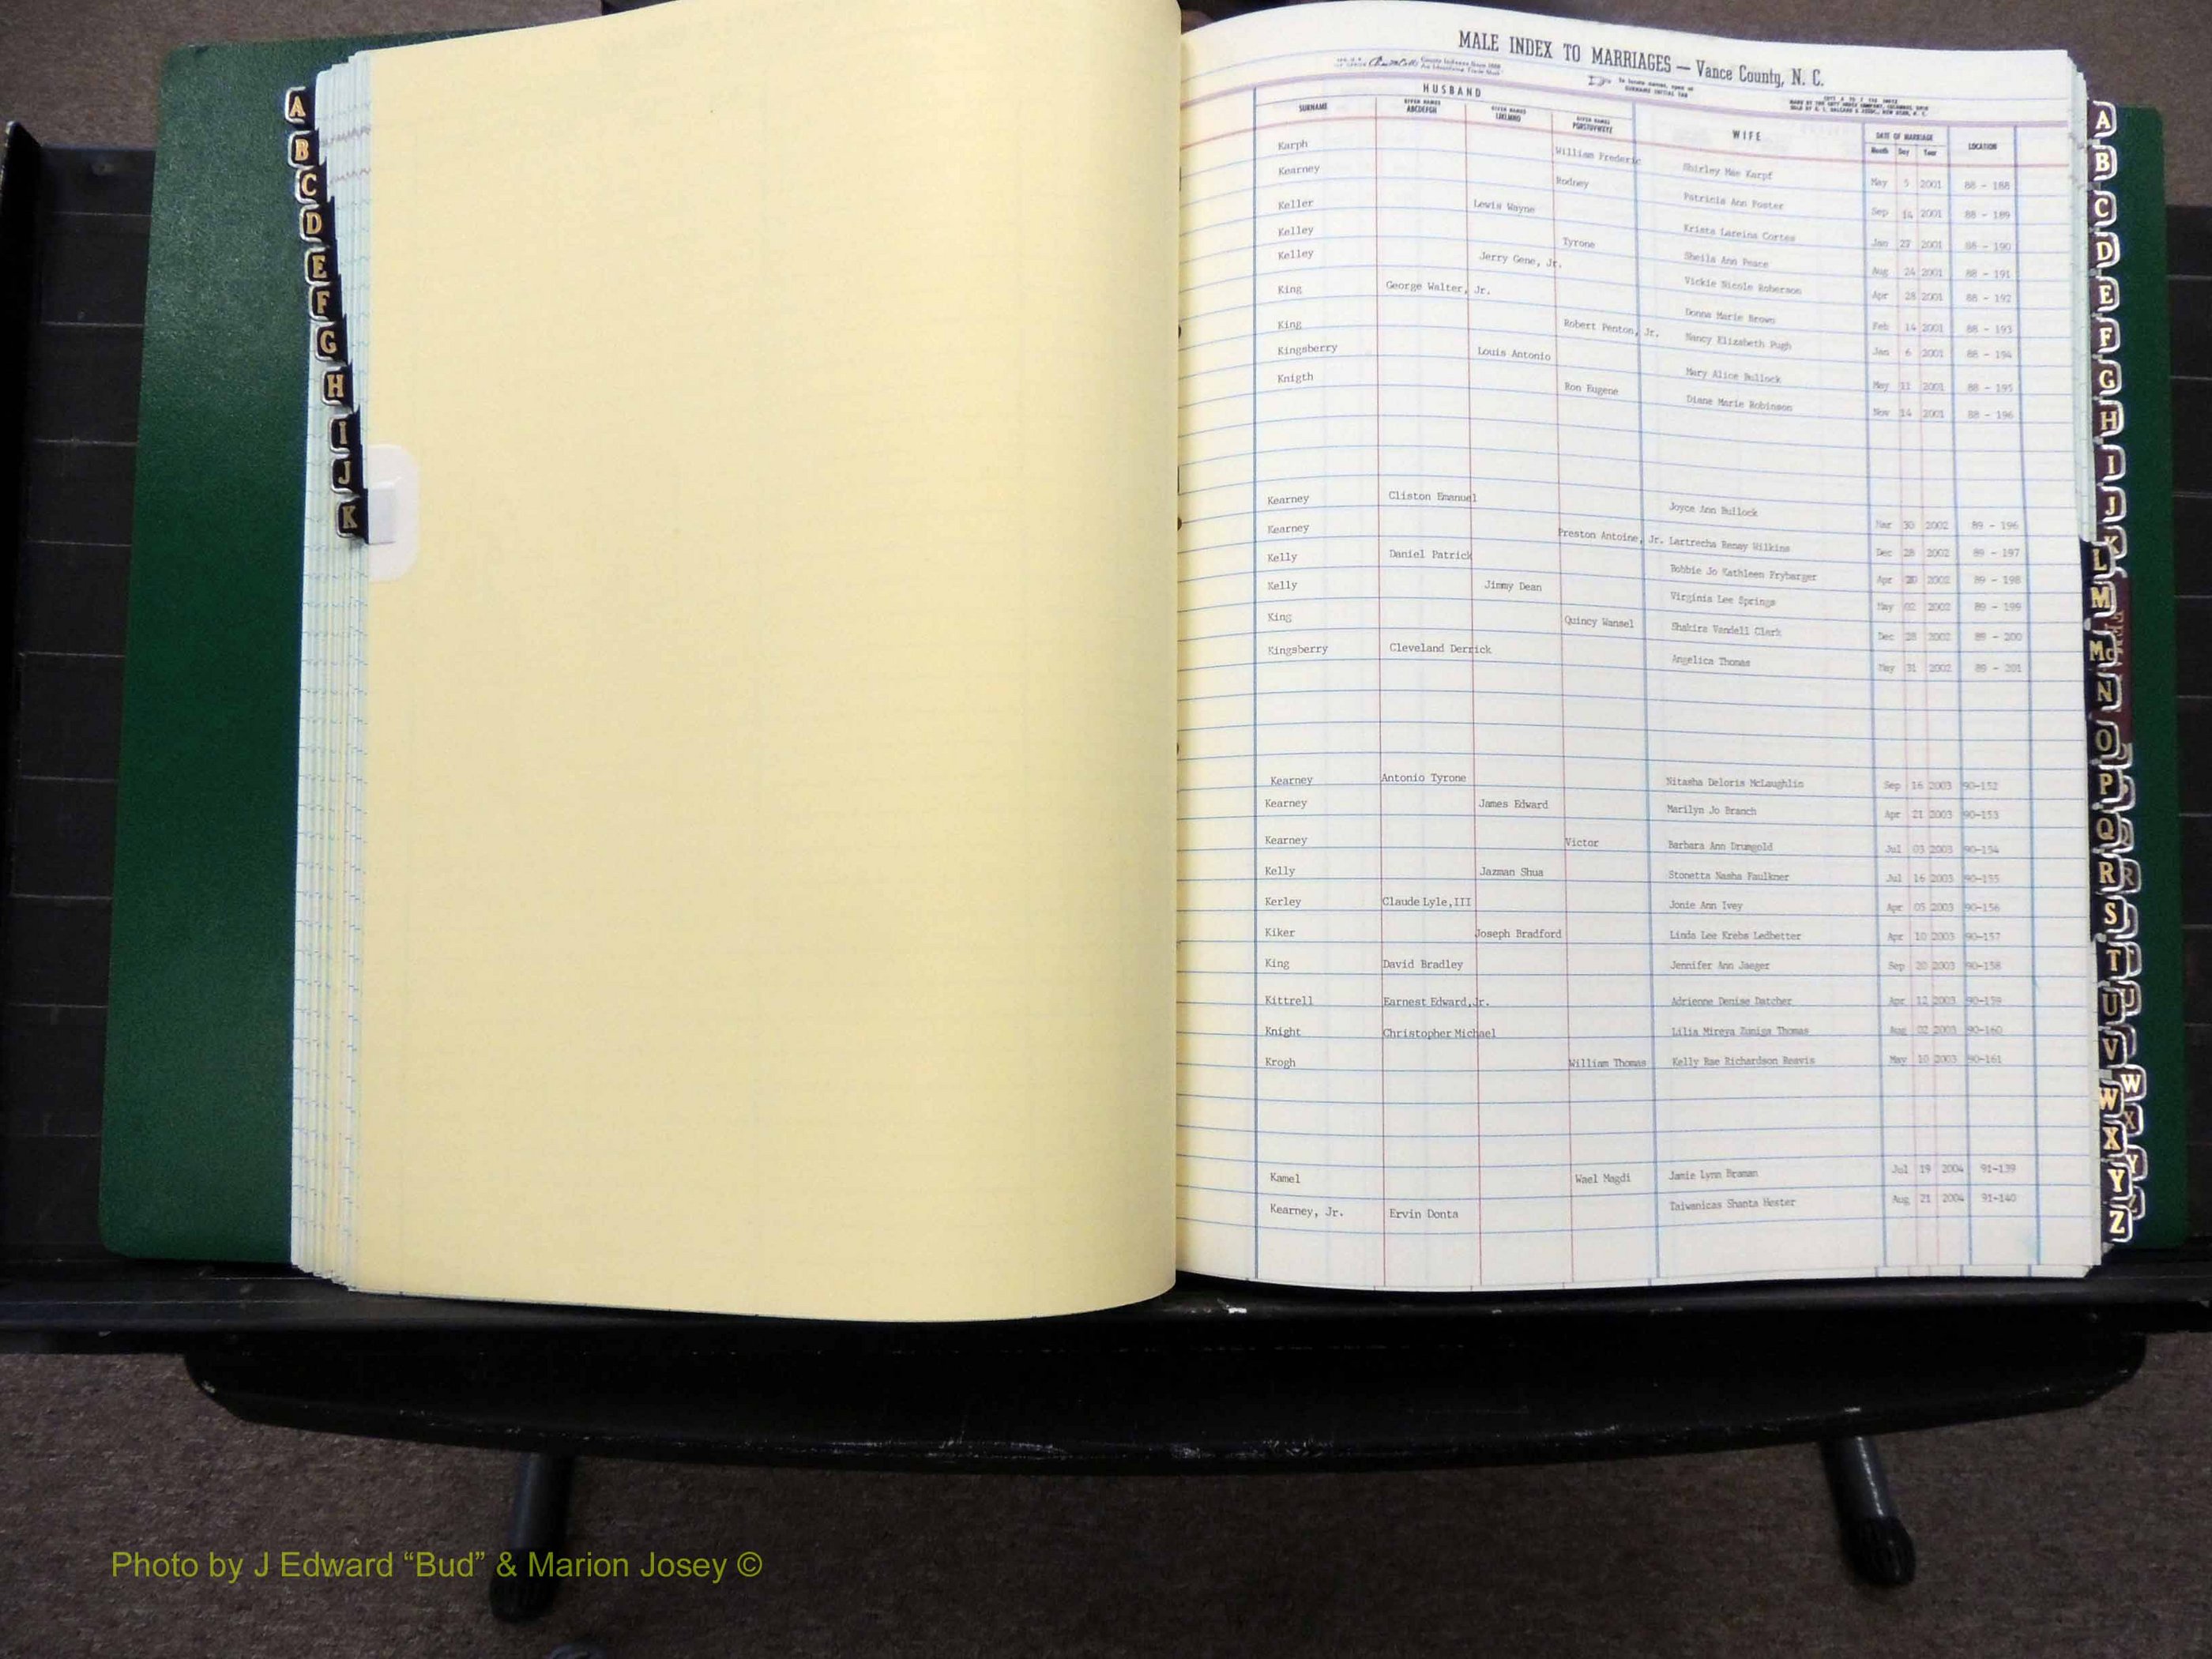 MALE INDEX TO MARRIAGES — Vance County, N. C.
HUSBAND
SURNAME GIVEN NAMES ABCDEFGH GIVEN NAMES IJKLMNO GIVEN NAMES PQRSTUVWXYZ WIFE DATE OF MARRIAGE Month Day Year LOCATION
Karph William Frederic Shirley Mae Karpf May 5 2001 88 - 188
Kearney Rodney Patricia Ann Foster Sep 14 2001 88 - 189
Keller Lewis Wayne Krista Lareina Cortes Jan 27 2001 88 - 190
Kelley Tyrone Sheila Ann Peace Aug 24 2001 88 - 191
Kelley Jerry Gene, Jr. Vickie Nicole Roberson Apr 28 2001 88 - 192
King George Walter, Jr. Donna Marie Brown Feb 14 2001 88 - 193
King Robert Penton, Jr. Nancy Elizabeth Pugh Jan 6 2001 88 - 194
Kingsberry Louis Antonio Mary Alice Bullock May 11 2001 88 - 195
Knigth Ron Eugene Diane Marie Robinson Nov 14 2001 88 - 196
Kearney Cliston Emanuel Joyce Ann Bullock Mar 30 2002 89 - 196
Kearney Preston Antoine, Jr. Lartrecha Renay Wilkins Dec 28 2002 89 - 197
Kelly Daniel Patrick Bobbie Jo Kathleen Frybarger Apr 20 2002 89 - 198
Kelly Jimmy Dean Virginia Lee Springs May 02 2002 89 - 199
King Quincy Wansel Shakira Vandell Clark Dec 28 2002 89 - 200
Kingsberry Cleveland Derrick Angelica Thomas May 31 2002 89 - 201
Kearney Antonio Tyrone Nitasha Deloris McLaughlin Sep 16 2003 90-152
Kearney James Edward Marilyn Jo Branch Apr 21 2003 90-153
Kearney Victor Barbara Ann Drumgold Jul 03 2003 90-154
Kelly Jazman Shua Stonetta Nasha Faulkner Jul 16 2003 90-155
Kerley Claude Lyle,III Jonie Ann Ivey Apr 05 2003 90-156
Kiker Joseph Bradford Linda Lee Krebs Ledbetter Apr 10 2003 90-157
King David Bradley Jennifer Ann Jaeger Sep 20 2003 90-158
Kittrell Earnest Edward,Jr. Adrienne Denise Datcher Apr 12 2003 90-159
Knight Christopher Michael Lilia Mireya Zuniga Thomas Aug 02 2003 90-160
Krogh William Thomas Kelly Rae Richardson Reavis May 10 2003 90-161
Kamel Wael Magdi Jamie Lynn Braman Jul 19 2004 91-139
Kearney, Jr. Ervin Donta Taiwanicas Shanta Hester Aug 21 2004 91-140
A
B
C
D
E
F
G
H
I
J
K
A
B
C
D
E
F
G
H
I
J
K
L
M
Mc
N
O
P
Q
R
S
T
U
V
W
X
Y
Z
Photo by J Edward “Bud” & Marion Josey ©